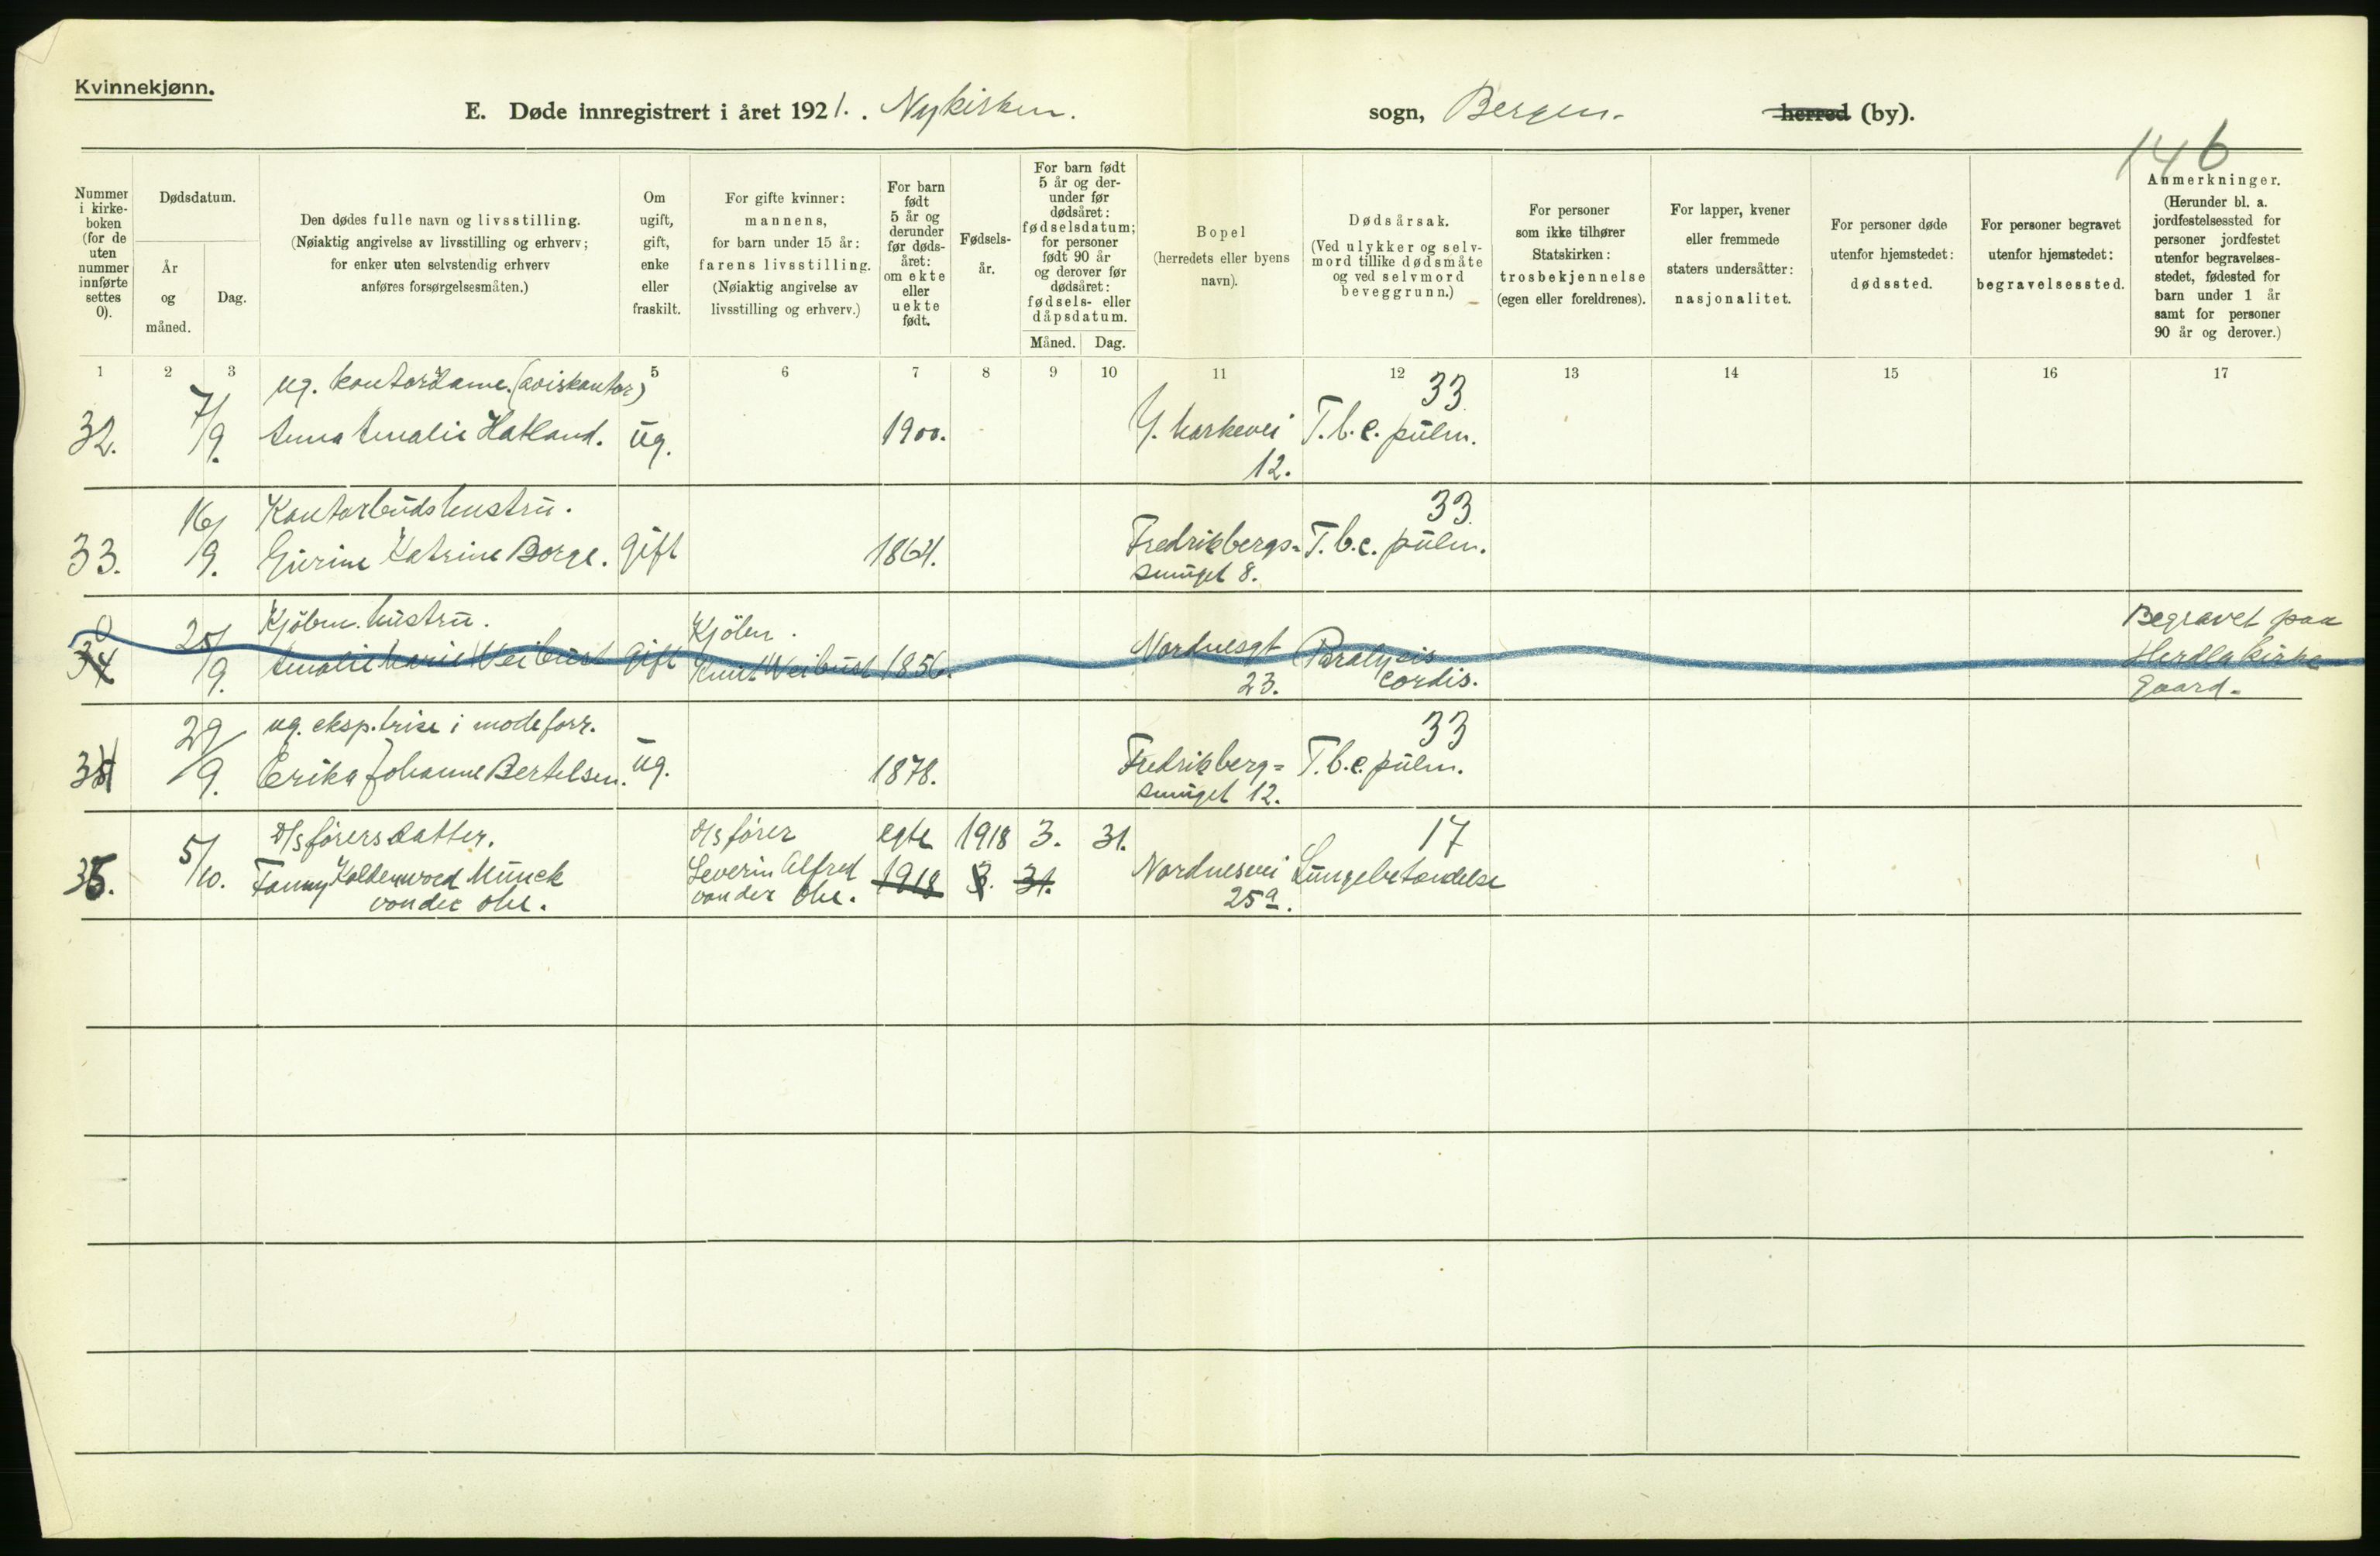 Kvinnekjønn.
E. Døde innregistrert i året 1921. . Nykirken. sogn, Bergen. herred (by).
146
Nummer i kirkeboken (for de uten nummer innførte settes 0).
Dødsdatum.
År og måned.
Dag.
Den dødes fulle navn og livsstilling.
(Nøiaktig angivelse av livsstilling og erhverv; for enker uten selvstendig erhverv anføres forsørgelsesmåten.)
Om ugift, gift, enke eller fraskilt.
For gifte kvinner: mannens, for barn under 15 år: farens livsstilling. (Nøiaktig angivelse av livsstilling og erhverv.)
For barn født 5 år og derunder før dødsåret: om ekte eller uekte født.
Fødselsår.
For barn født 5 år og derunder før dødsåret: fødselsdatum; for personer født 90 år og derover før dødsåret: fødsels- eller dåpsdatum.
Måned. Dag.
Bopel (herredets eller byens navn).
Dødsårsak. (Ved ulykker og selvmord tillike dødsmåte og ved selvmord beveggrunn.)
For personer som ikke tilhører Statskirken: trosbekjennelse (egen eller foreldrenes).
For lapper, kvener eller fremmede staters undersåtter: nasjonalitet.
For personer døde utenfor hjemstedet: dødssted.
For personer begravet utenfor hjemstedet: begravelsessted.
Anmerkninger. (Herunder bl. a. jordfestelsessted for personer jordfestet utenfor begravelsesstedet, fødested for barn under 1 år samt for personer 90 år og derover.)
1 2 3 5 6 7 8 9 10 11 12 13 14 15 16 17
ug. kontordame. (aviskontor) 33
32. 7/9. Anna Amalie Hatland. ug. 1900. Y. Markevei T.b.c. pulm.
12.
Kontorbudshustru. 33
33. 16/9. Gurine Katrine Borge. gift 1864. Fredriksbergs= T.b.c. pulm.
smuget 8.
0 Kjøbm. hustru. Kjøbm. Begravet paa
34 25/9. Amalie Marie Weibust gift Knut Weibust 1856. Nordnesgt Paralysis Herdla kirke
23. cordis. gaard.
ug. eksp.trise i modeforr. 33
34 29/9. Erika Johanne Bertelsen. ug. 1878. Fredrikberg= T.b.c. pulm.
smuget 12.
D/s førers datter. D/s fører egte 1918 3. 31. 17
35. 5/10. Fanny Munck Severin Alfred 1918 3. 31. Nordnesvei Lungebetændelse
von der Ohe. von der Ohe. 25a.